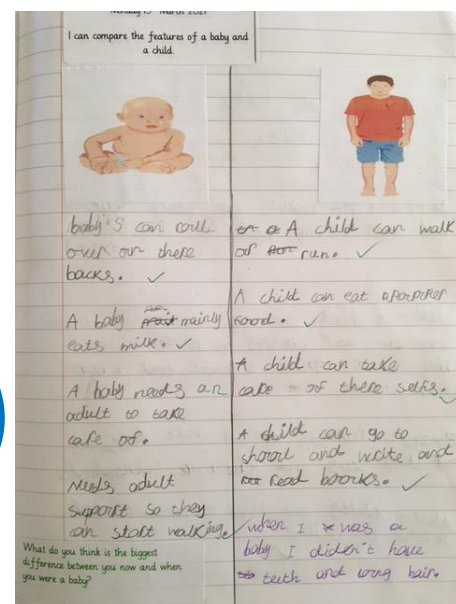 I can compare the features of a baby and
a child.
baby's can roll
over on there
backs.
A baby mainly
eats milk.
A baby needs an
adult to take
care of.
Needs adult
support so they
can start walking.
What do you think is the biggest
difference between you now and when
you were a baby?
A child can walk
or run.
A child can eat
food.
A child can take
care of there selfs.
A child can go to
shool and write and
read boorks.
when I was a
baby I diden't have
teeth and long hair.